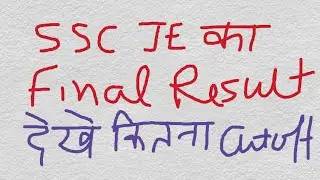 SSC JE का
Final Result
देखे कितना Cutoff